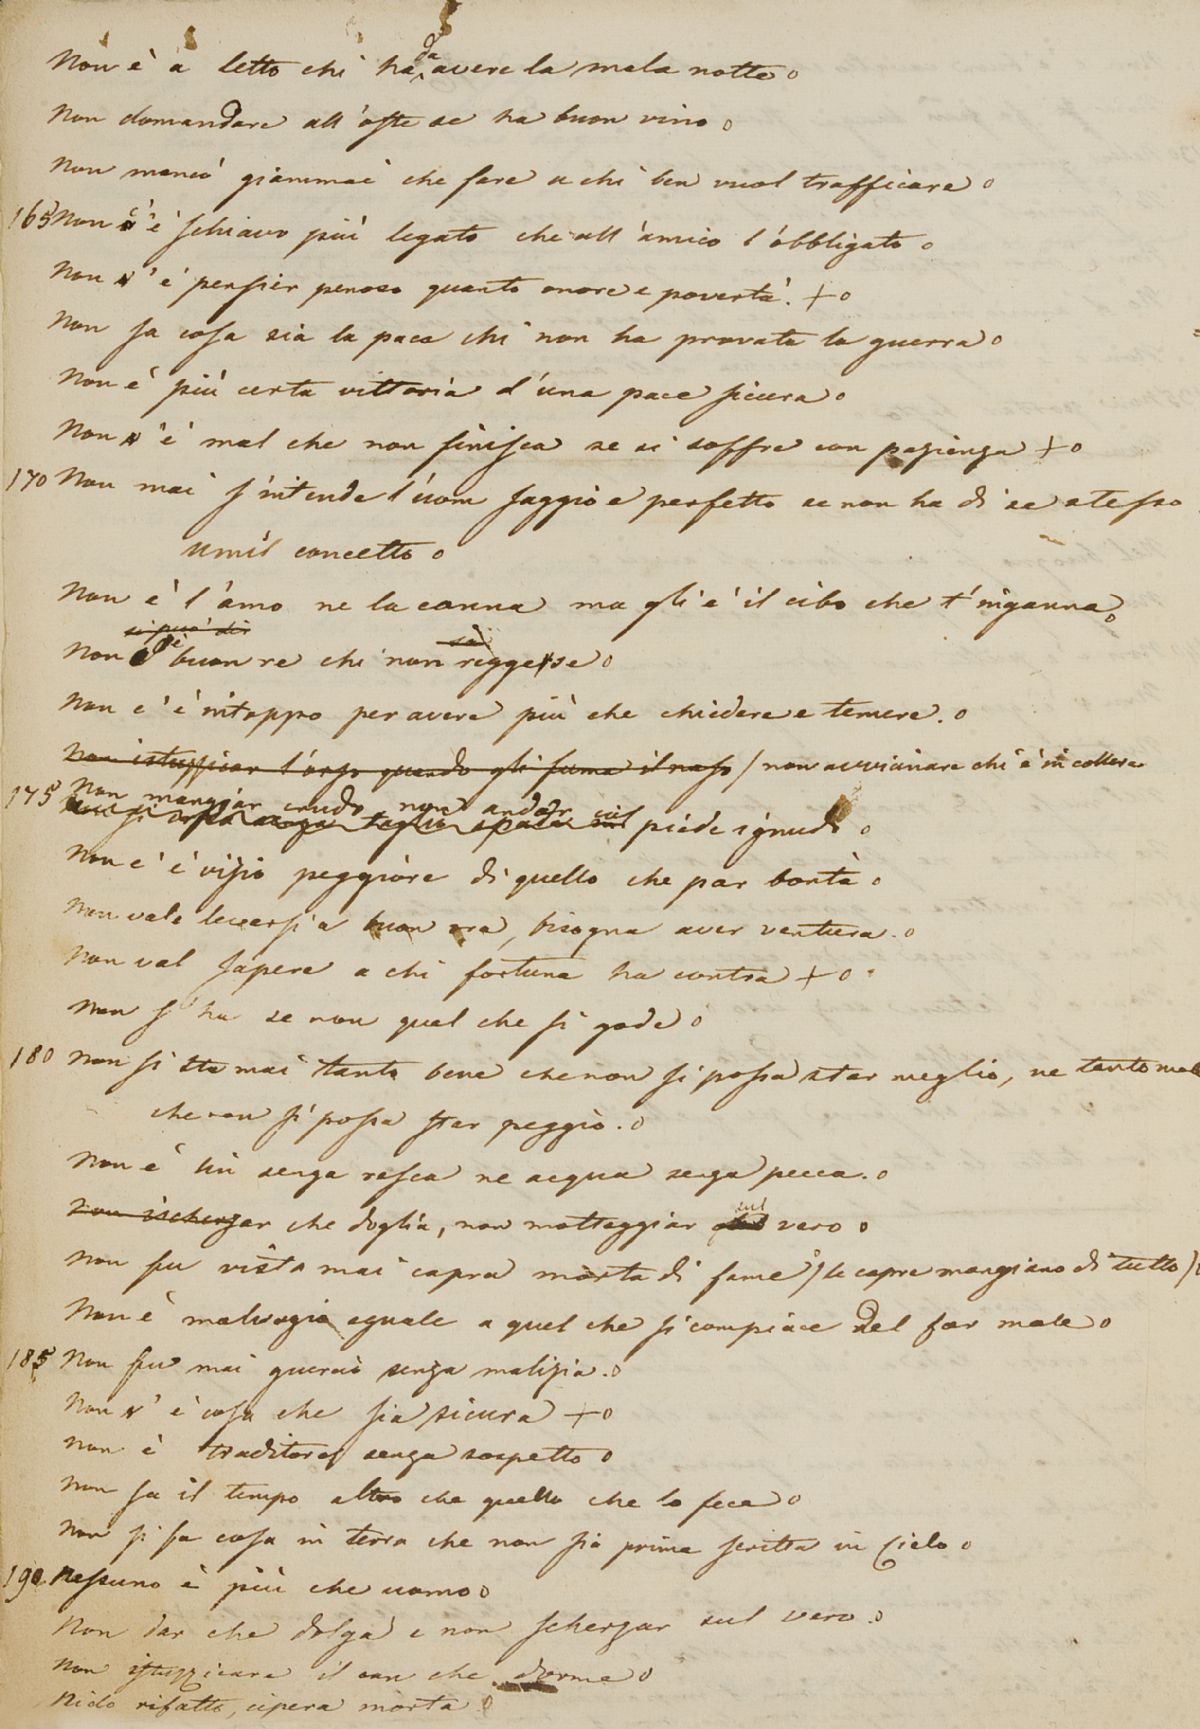 Non è a letto chi ha da avere la mala notte o
Non domandare all'oste se ha buon vino o
Non mancò giammai che fare a chi ben vuol trafficare o
165 Non c'è schiavo più legato che all'amico l'obbligato o
Non v'è pensier penoso quanto onore e povertà. + o
Non sa cosa sia la pace chi non ha provata la guerra o
Non è più certa vittoria d'una pace sicura o
Non v'è mal che non finisca se si soffre con pazienza + o
170 Non mai s'intende l'uom saggio e perfetto se non ha di se stesso
umil concetto o
Non è l'amo ne la canna ma gli è il cibo che t'inganna o
si può dir
Non è buon re chi non sa regger se o
Non c'è intoppo per avere più che chiedere e temere. o
Non istuzzicar l'orso quando gli fuma il naso / non avvicinare chi è in collera
175 Non mangiar crudo, non andar col piede ignudo o
Non c'è vizio peggiore di quello che par bontà o
Non vale levarsi a buon ora, bisogna aver ventura. o
Non val sapere a chi fortuna ha contra + o
Non s'ha se non quel che si gode o
180 Non si sta mai tanto bene che non si possa star meglio, ne tanto male
che non si possa star peggio. o
Non è lin senza resca ne acqua senza pecca. o
Non ischerzar che doglia, non motteggiar sul vero o
Non fu vista mai capra morta di fame / le capre mangiano di tutto /
Non è malvagio eguale a quel che si compiace del far male o
185 Non fu mai guercio senza malizia. o
Non v'è cosa che sia sicura + o
Non è traditore senza sospetto o
Non sa il tempo altro che quello che lo fece o
Non si fa cosa in terra che non sia prima scritta in Cielo o
190 Nessuno è più che uomo o
Non dar che dolga e non scherzar sul vero. o
Non istuzzicare il can che dorme o
Nido rifatto, cipera morta o